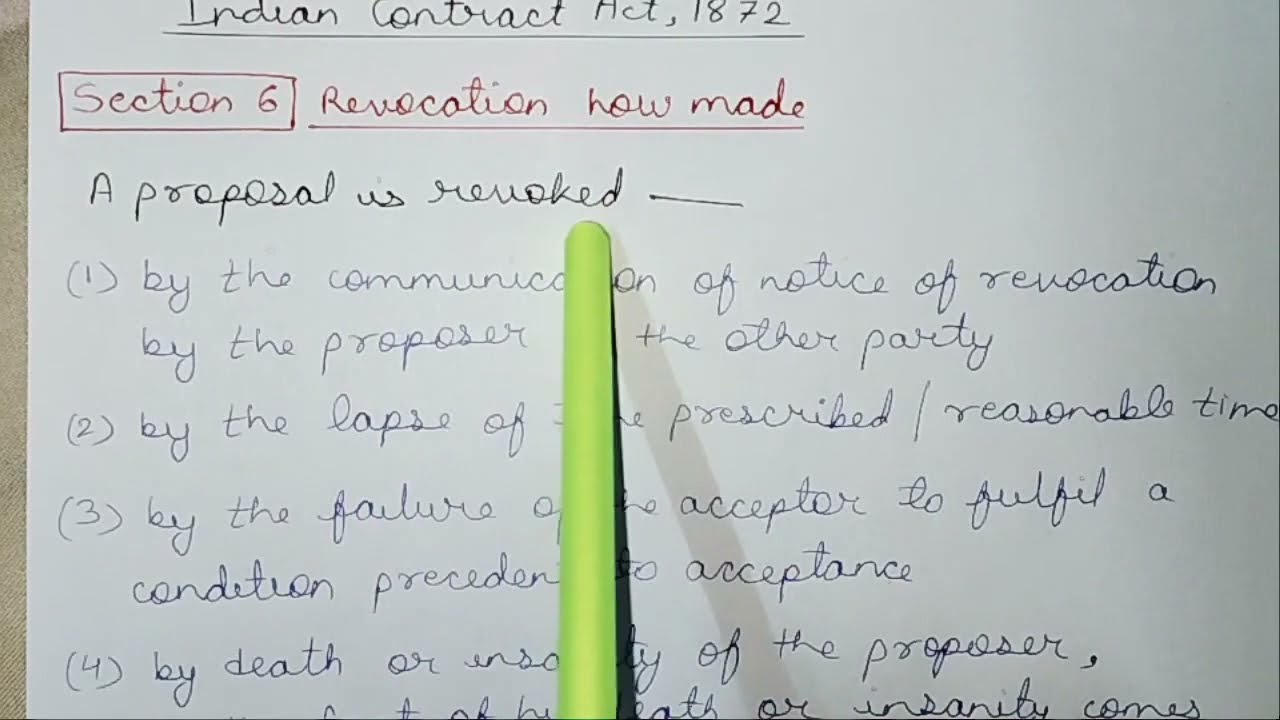 Indian Contract Act, 1872
Section 6 Revocation how made
A proposal is revoked —
(1) by the communication of notice of revocation
by the proposer the other party
(2) by the lapse of prescribed / reasonable time
(3) by the failure of the acceptor to fulfil a
condition precedent to acceptance
(4) by death or insanity of the proposer,
of death or insanity comes